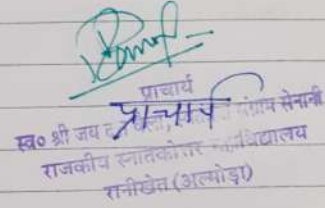 प्राचार्य
प्राचार्य
स्व० श्री जय द संग्राम सेनानी
राजकीय स्नातकोत्तर महाविद्यालय
रानीखेत (अल्मोड़ा)